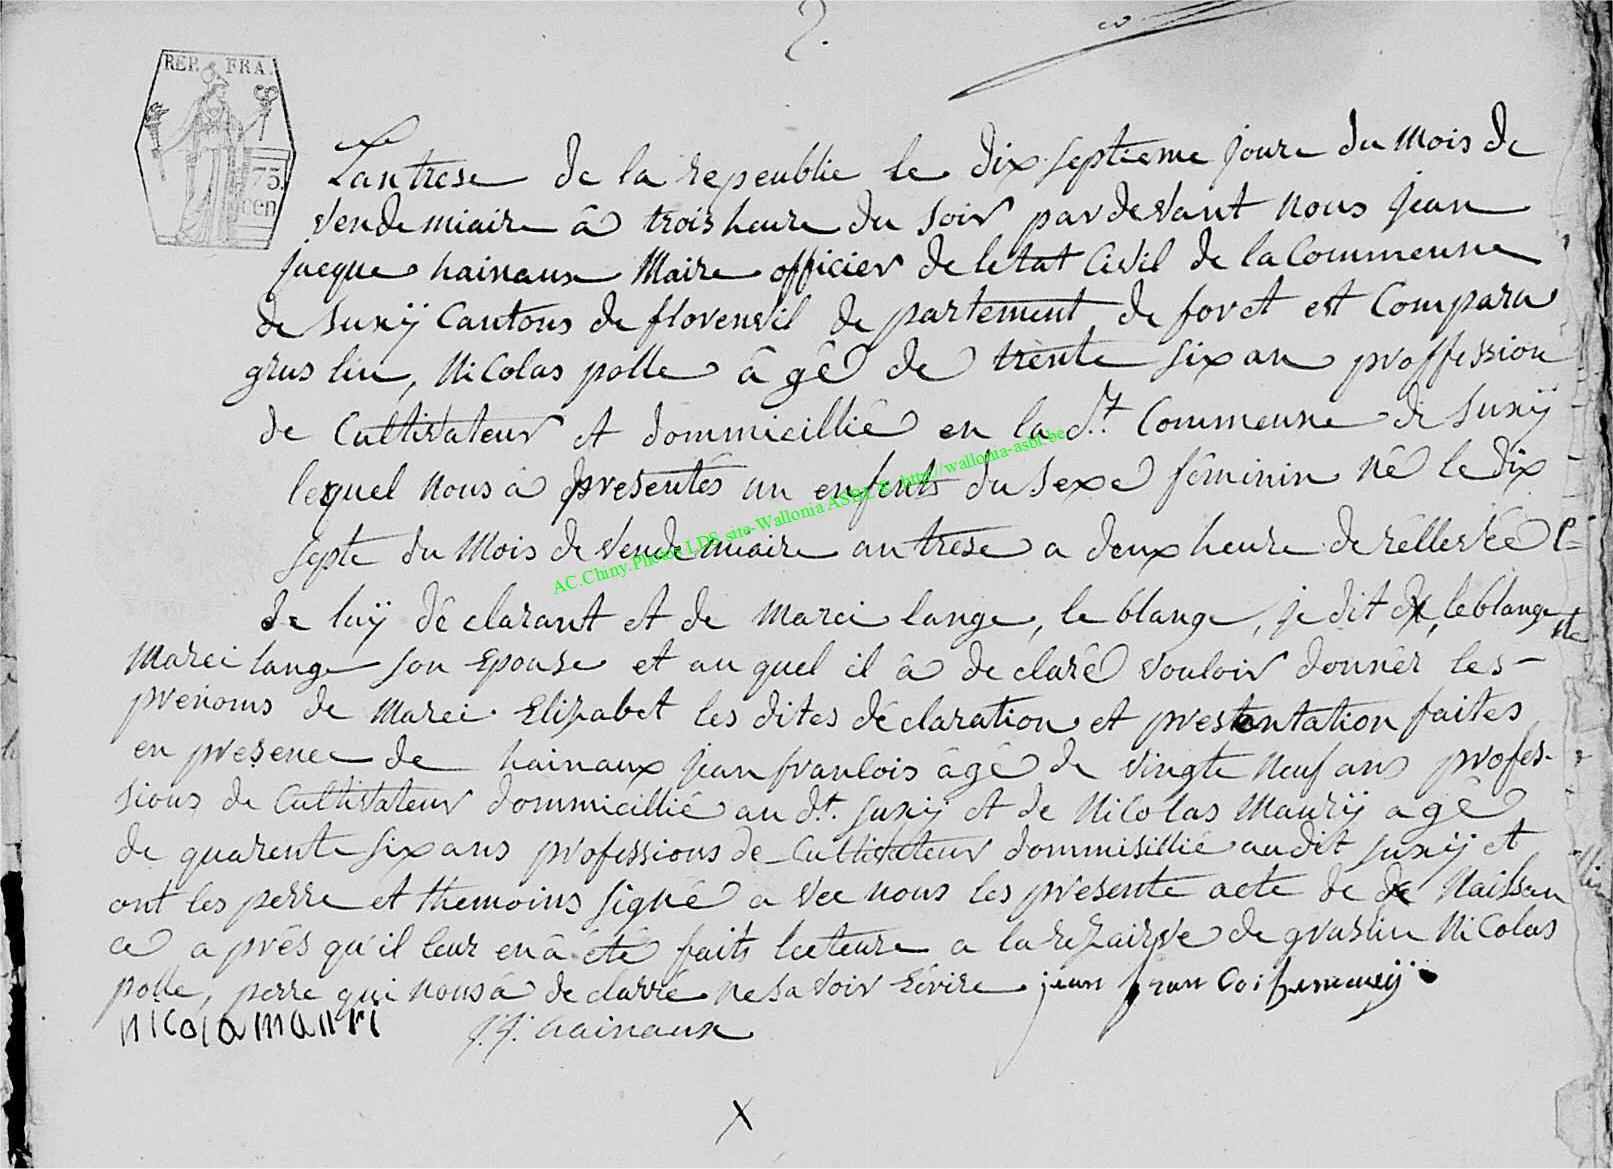 2.
REP. FRA.
75.
cen
Lantrese de la repeublie le dix septieme joure du mois de
vendemiaire â trois heure du soir pardevant nous jean
jacque hainaux Maire officier de letat Civil de la Commeune
de Suxÿ Cantons de florenvil de partement de foret est Comparu
gruslin, Nicolas polle âgê de trente six an proffession
de Cultivateur et dommicillié en la dt. Commeune de Suxÿ
lequel nous â presentés un enfents du sexe féminin né le dix
septe du Mois de vendemiaire antrese a deux heure de réllevée
de luÿ déclarant et de Marei lange, le blange, je dit leblange
Marei lange son Epouse et auquel il â declaré vouloir donnér les
prénoms de Marei Elizabet les dites déclaration et presentation faites
en presence de hainaux jean franlois âgé de vingte neuf ans profes-
sions de Cultivateur dommicillié au dt. Suxÿ et de Nicolas Maurÿ agé
de quarente six ans professions de Cultivateur dommisillié audit Suxÿ et
ont les perre et themoins signé avec nous les présente acte de Naissan
ce aprés qu'il leur en â été faits lecteure a la rezairve de gruslin Nicolas
polle, perre qui nous â declarré ne savoir Ecrire jean fran
nicola mauri J.J. hainaux
X
AC.Chiny.Photo LDS site-Wallonia ASBL © http://wallonia-asbl.be